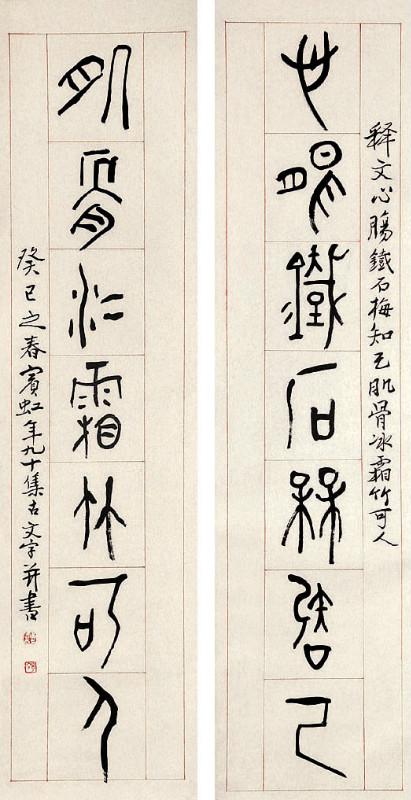 心腸鐵石梅知己
釋文心腸鐵石梅知己肌骨冰霜竹可人
肌骨冰霜竹可人
癸巳之春賓虹年九十集古文字并書